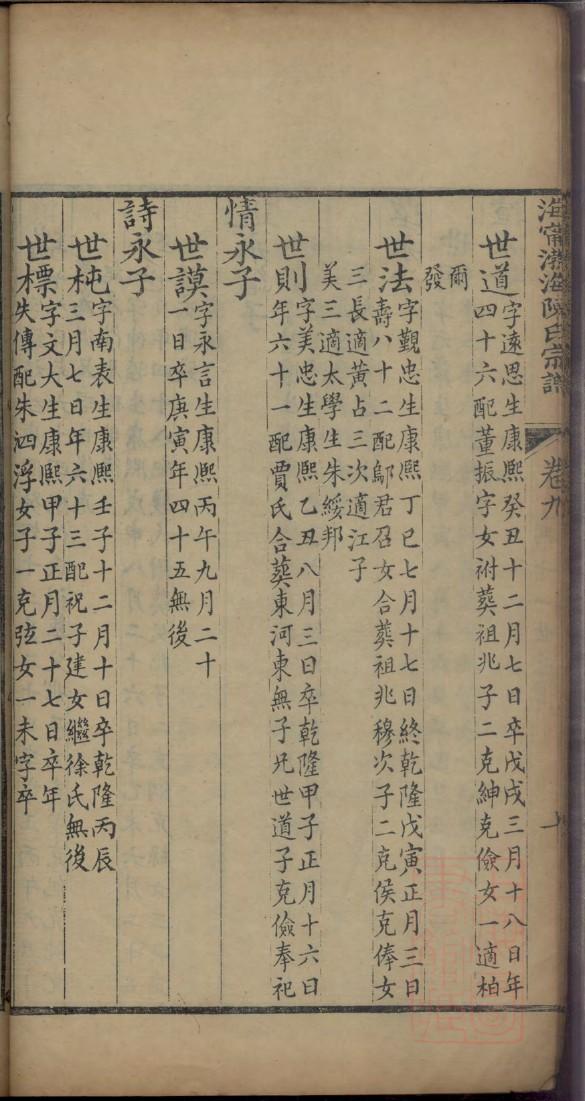 海甯渤海陳氏宗譜
卷九
世道
字遠思生康熙癸丑十二月七日卒戊戌三月十八日年
四十六配董振字女祔葬祖兆子二克紳克儉女一適柏
爾
發
世法
字覲忠生康熙丁巳七月十七日終乾隆戊寅正月三日
壽八十二配鄔君召女合葬祖兆穆次子二克侯克俸女
三長適黃占三次適江子
美三適太學生朱綬邦
世則
字美忠生康熙乙丑八月三日卒乾隆甲子正月十六日
年六十一配賈氏合葬東河東無子兄世道子克儉奉祀
情永子
世謨
字永言生康熙丙午九月二十
一日卒庚寅年四十五無後
詩永子
世杶
字南表生康熙壬子十二月十日卒乾隆丙辰
三月七日年六十三配祝子建女繼徐氏無後
世標
字文大生康熙甲子正月二十七日卒年
失傳配朱泗浮女子一克弦女一未字卒